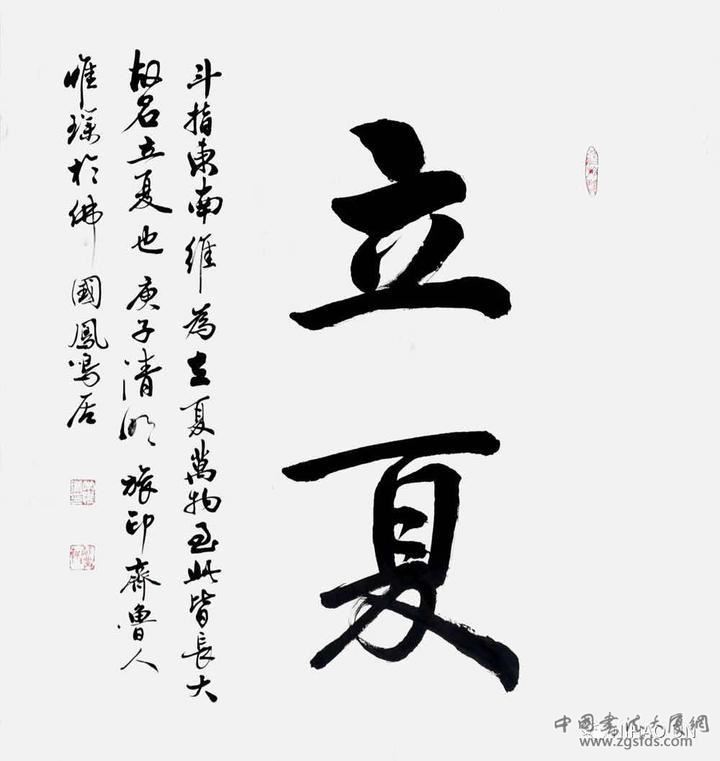 立夏
斗指東南維為立夏萬物至此皆長大
故名立夏也庚子清明旅印齊魯人
惟瑔於佛國鳳鳴居
中国書法大廈網
www.zgsfds.com